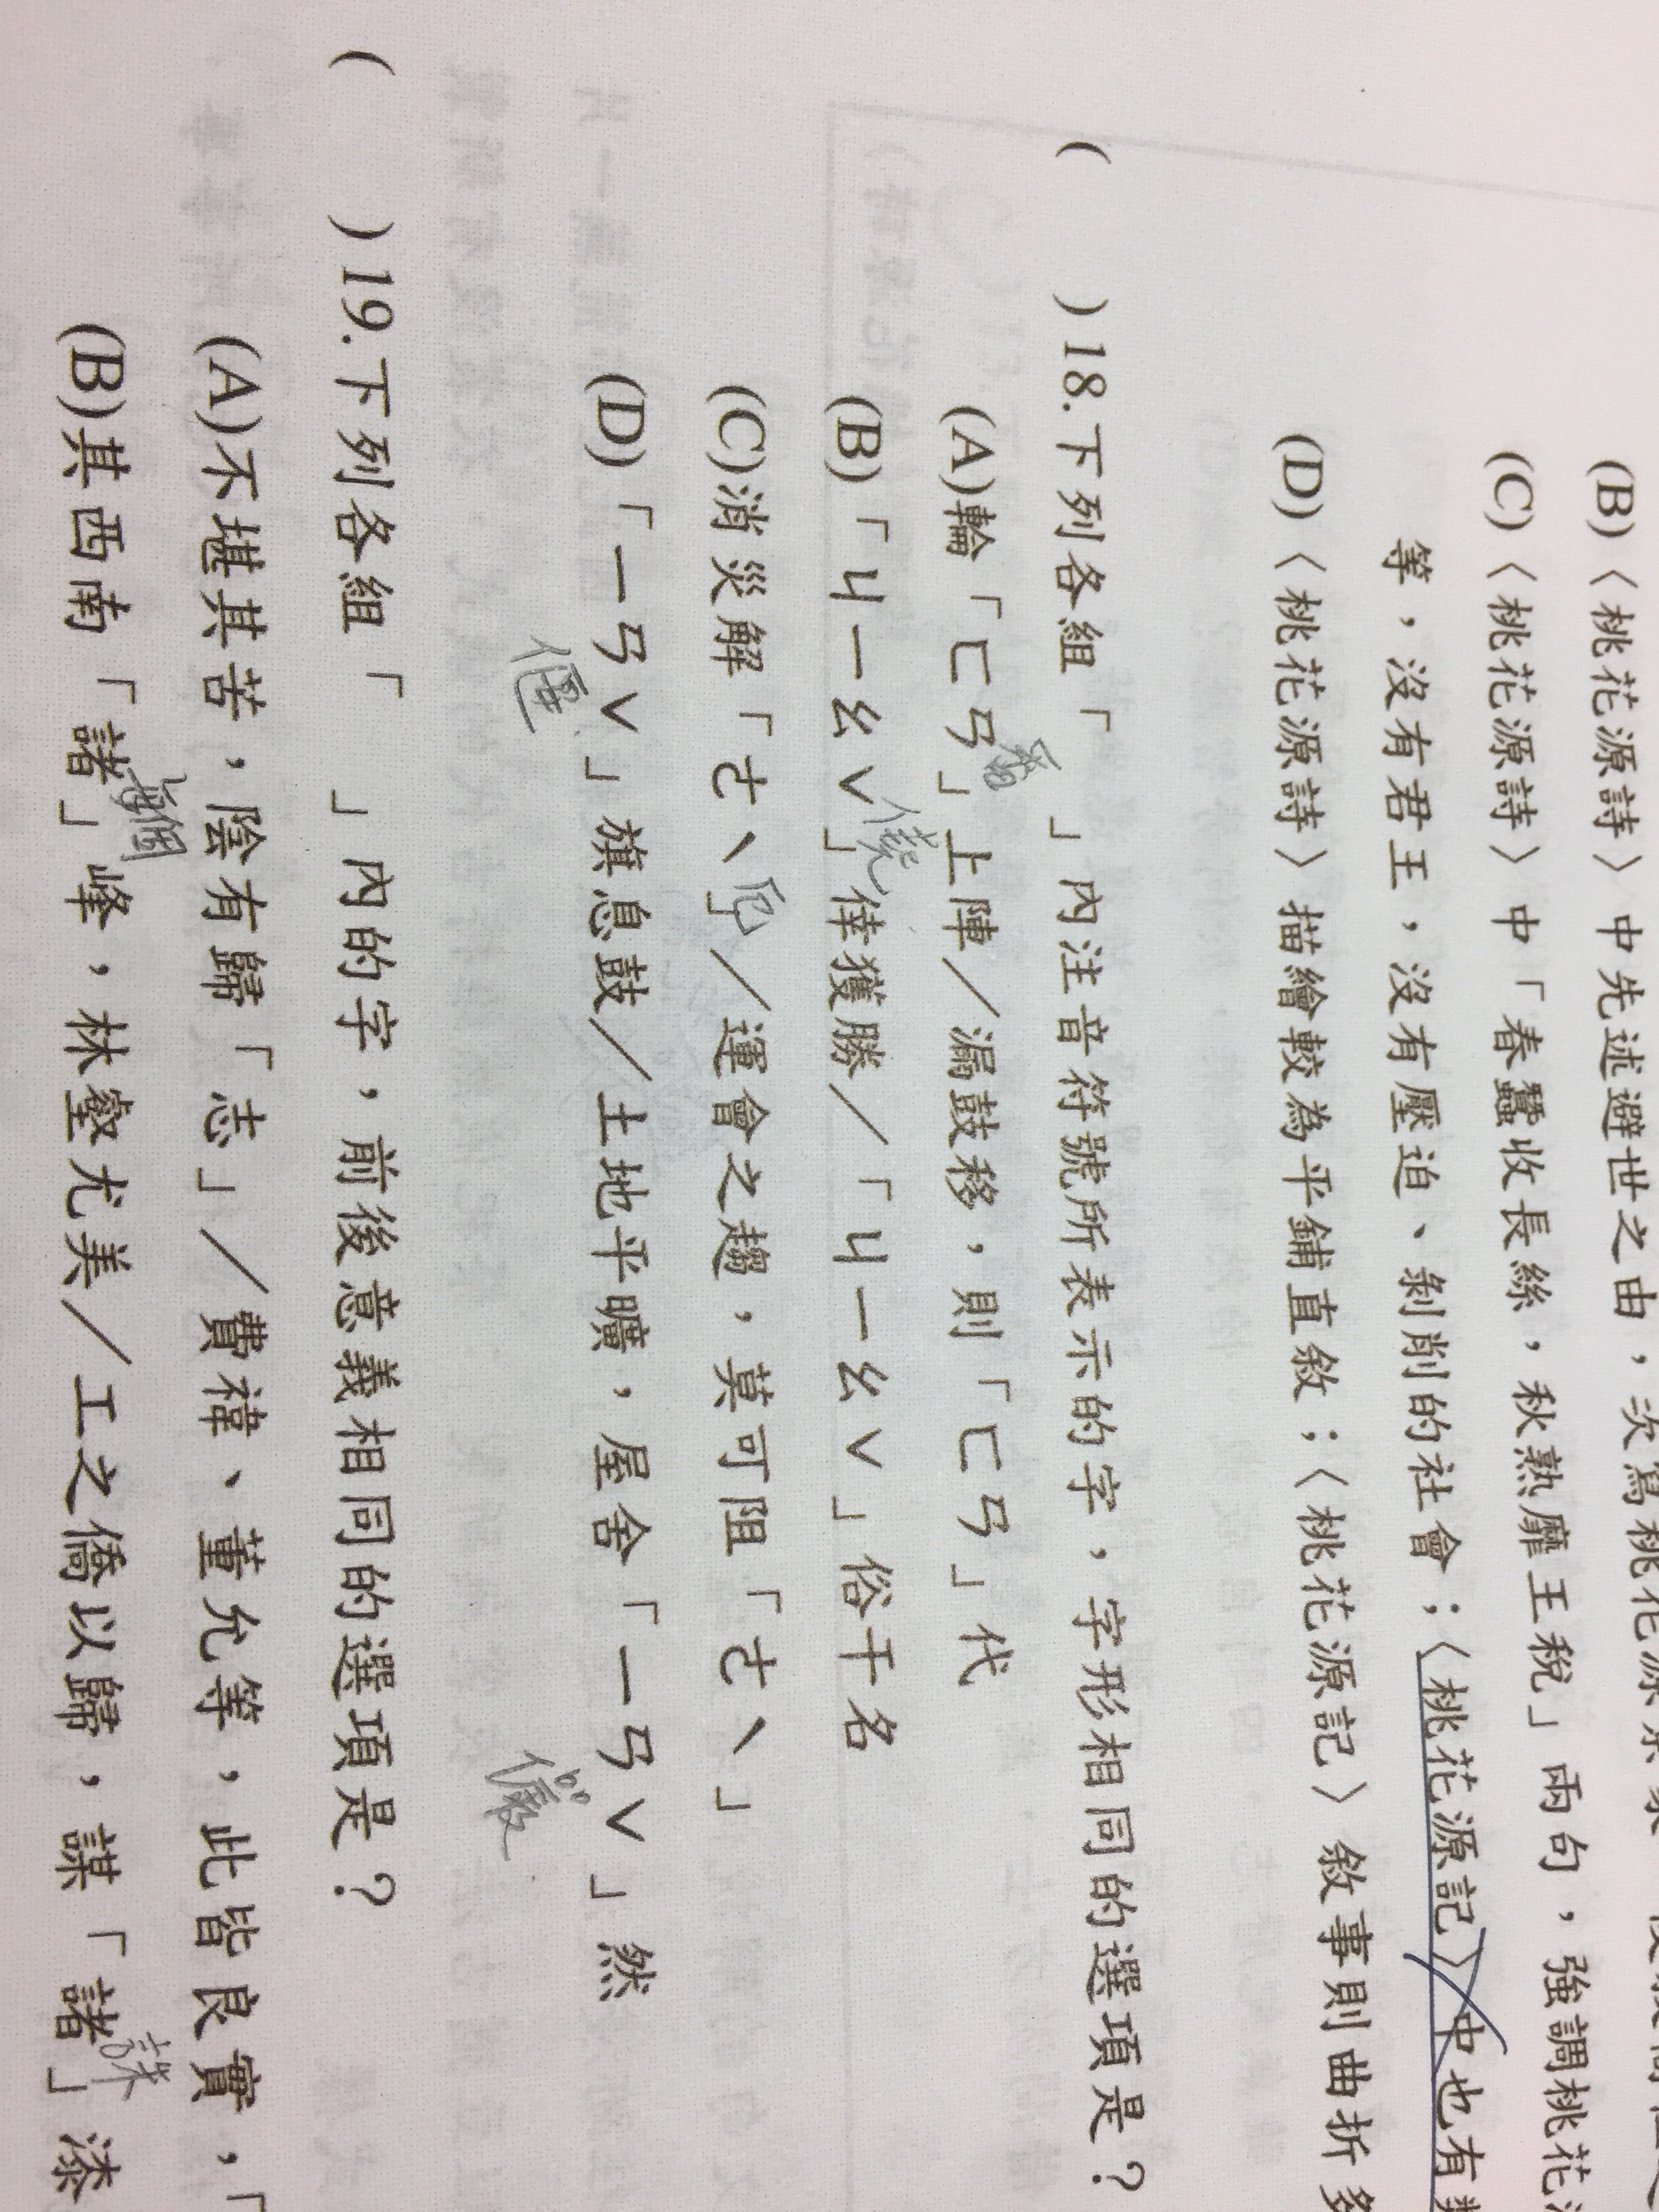 (B)〈桃花源詩〉中先述避世之由，次寫桃花源
(C)〈桃花源詩〉中「春蠶收長絲，秋熟靡王稅」兩句，強調桃花
等，沒有君王，沒有壓迫、剝削的社會；〈桃花源記〉中也有
(D)〈桃花源詩〉描繪較為平鋪直敘；〈桃花源記〉敘事則曲折多
( )18.下列各組「 」內注音符號所表示的字，字形相同的選項是？
(A)輪「ㄈㄢ」上陣／漏鼓移，則「ㄈㄢ」代
番
(B)「ㄐㄧㄠˇ」倖獲勝／「ㄐㄧㄠˇ」俗干名
僥
(C)消災解「ㄜˋ」／運會之趨，莫可阻「ㄜˋ」
厄
(D)「ㄧㄢˇ」旗息鼓／土地平曠，屋舍「ㄧㄢˇ」然
偃
儼
( )19.下列各組「 」內的字，前後意義相同的選項是？
(A)不堪其苦，陰有歸「志」／費禕、董允等，此皆良實，「
(B)其西南「諸」峰，林壑尤美／工之僑以歸，謀「諸」漆
每個